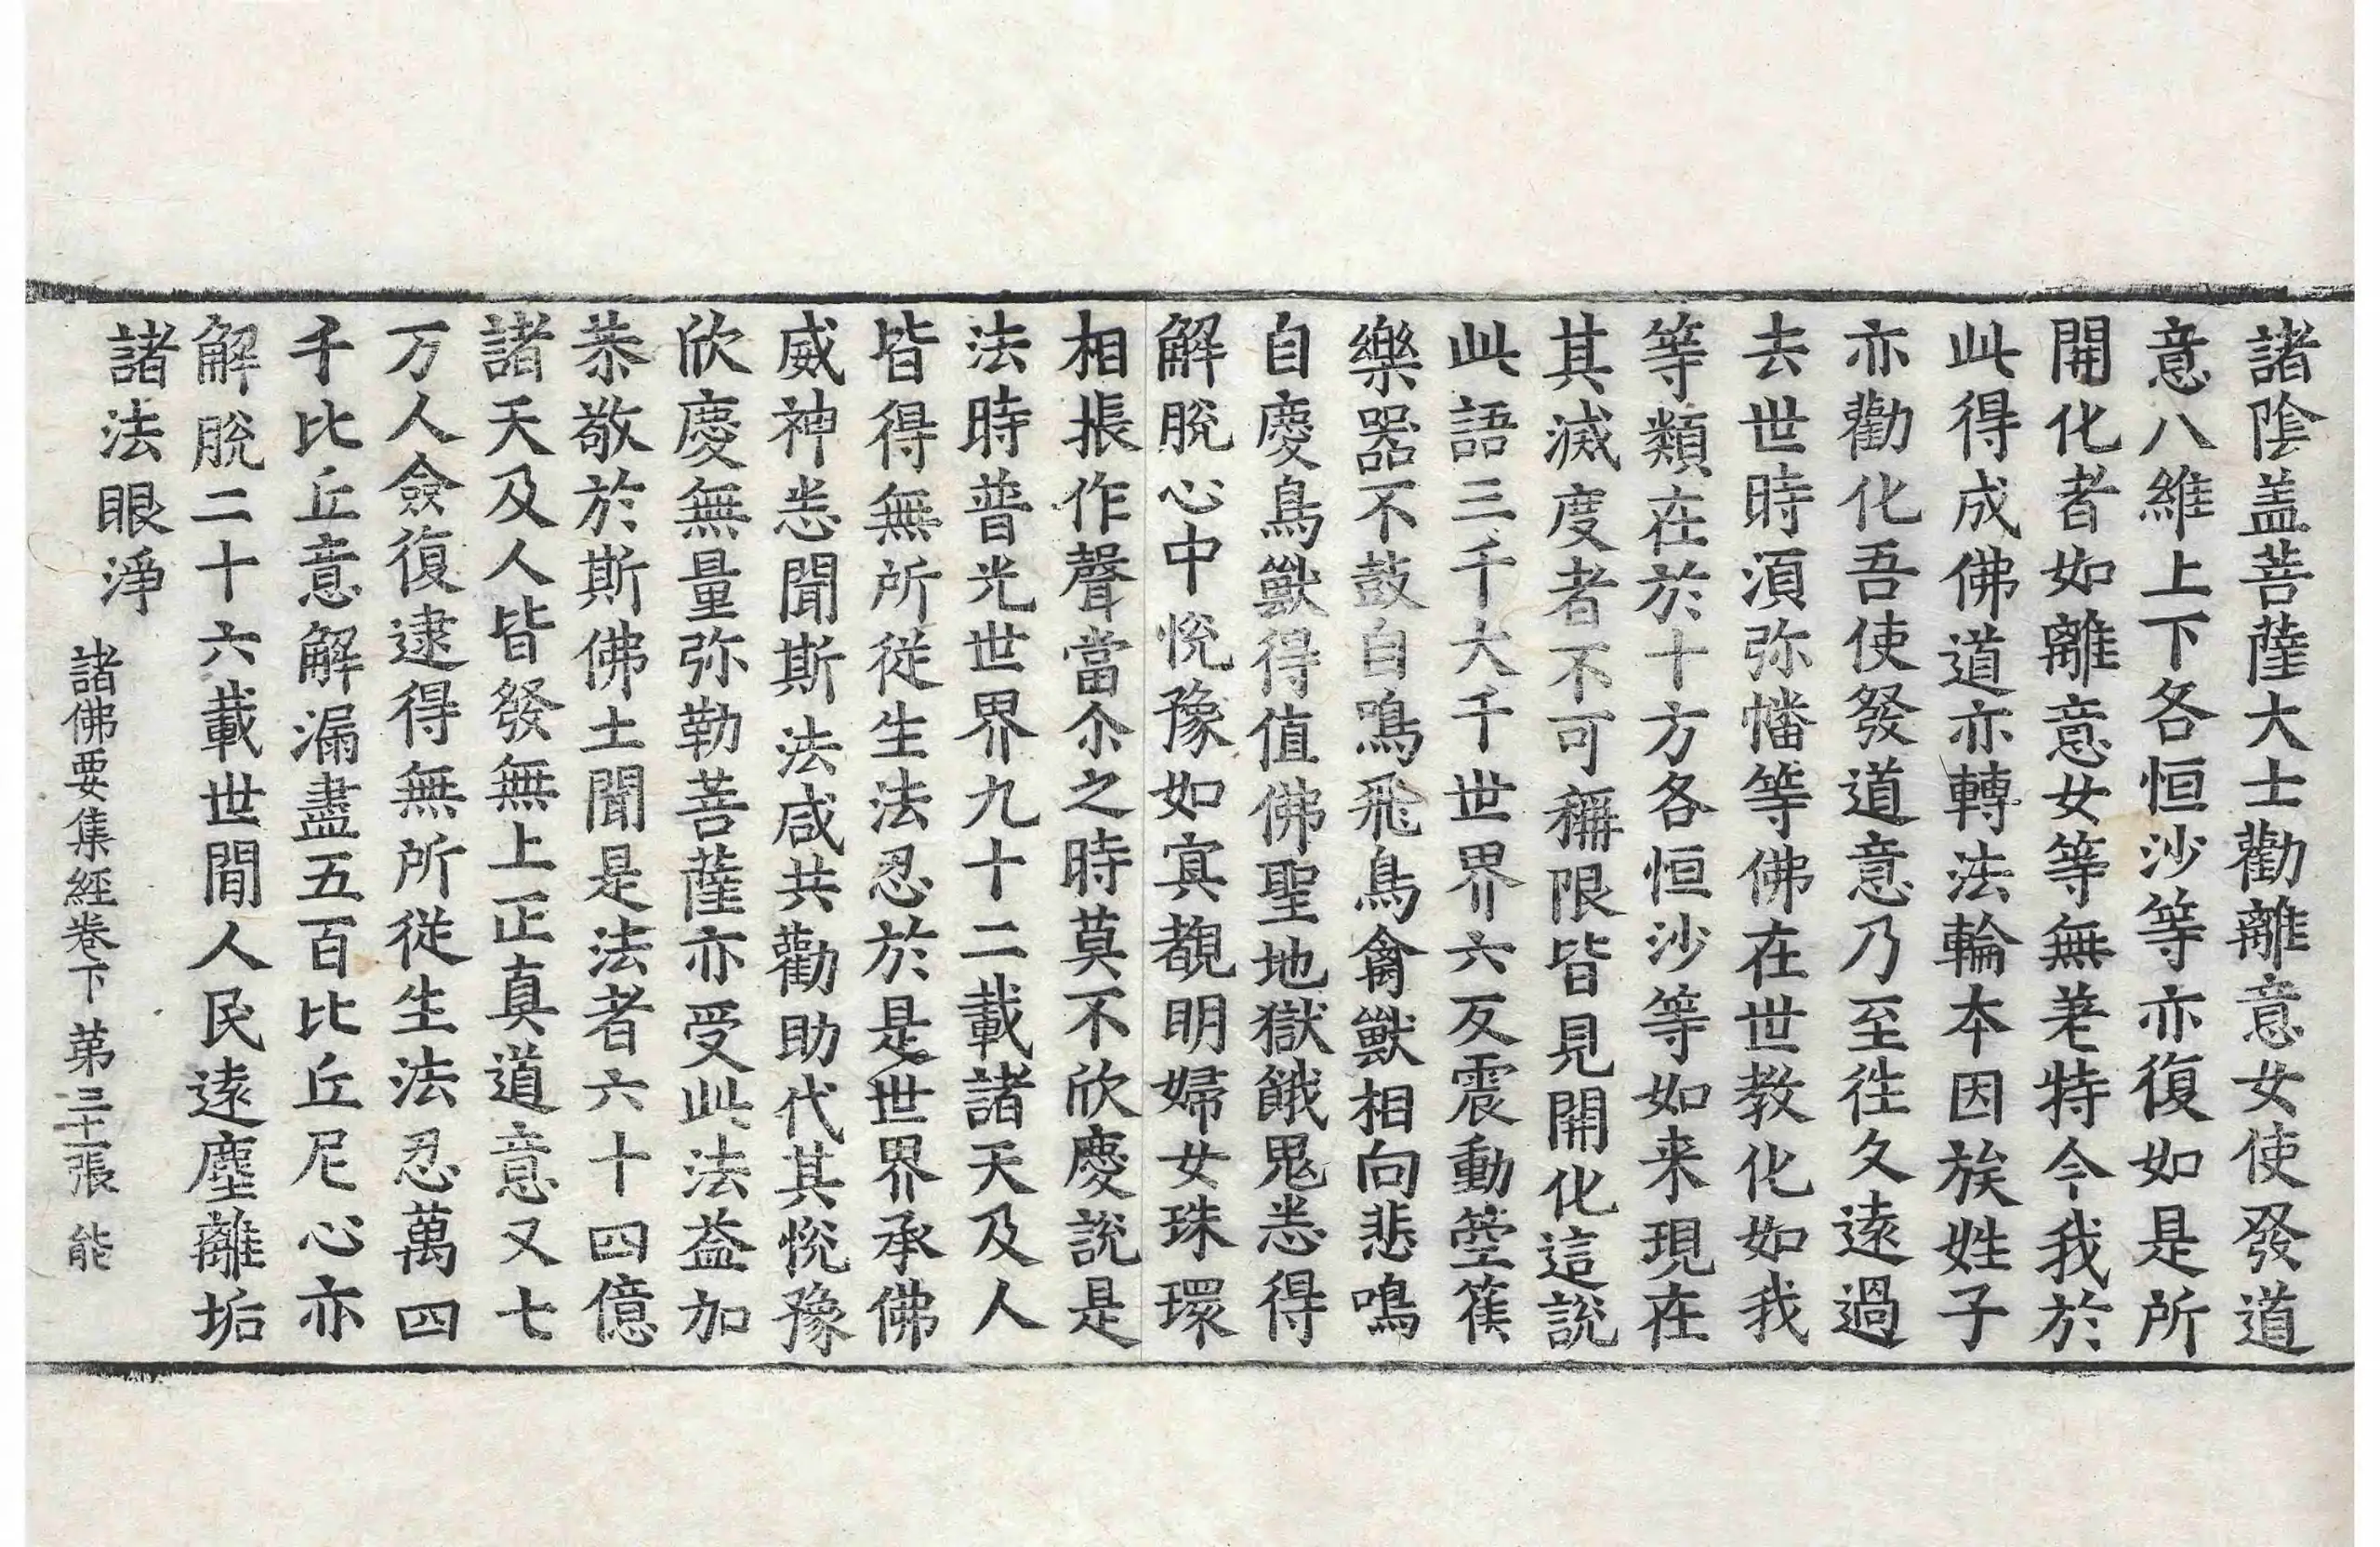 諸陰盖菩薩大士勸離意女使發道
意八維上下各恒沙等亦復如是所
開化者如離意女等無差特今我於
此得成佛道亦轉法輪本因族姓子
亦勸化吾使發道意乃至徃久遠過
去世時湏弥幡等佛在世教化如我
等類在於十方各恒沙等如来現在
其滅度者不可稱限皆見開化這說
此語三千大千世界六反震動箜篌
樂器不鼓自鳴飛鳥禽獸相向悲鳴
自慶鳥獸得值佛聖地獄餓鬼悉得
解脫心中恱豫如𡨋覩明婦女珠環
相振作聲當尒之時莫不欣慶說是
法時普光世界九十二載諸天及人
皆得無所從生法忍於是世界承佛
威神悉聞斯法咸共勸助代其恱豫
欣慶無量弥勒菩薩亦受此法益加
恭敬於斯佛土聞是法者六十四億
諸天及人皆發無上正真道意又七
万人僉復逮得無所從生法忍萬四
千比丘意解漏盡五百比丘尼心亦
解脫二十六載世間人民遠塵離垢
諸法眼淨
諸佛要集經卷下 苐三十二張 能